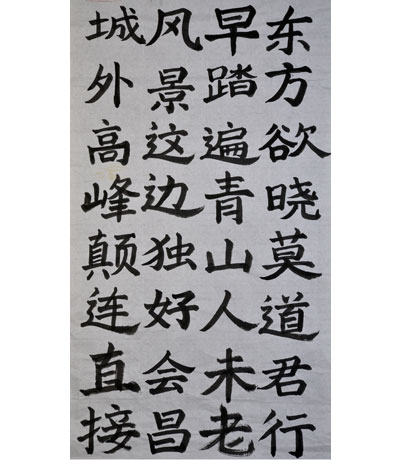 东方欲晓莫道君行
早踏遍青山人未老
风景这边独好会昌
城外高峰颠连直接